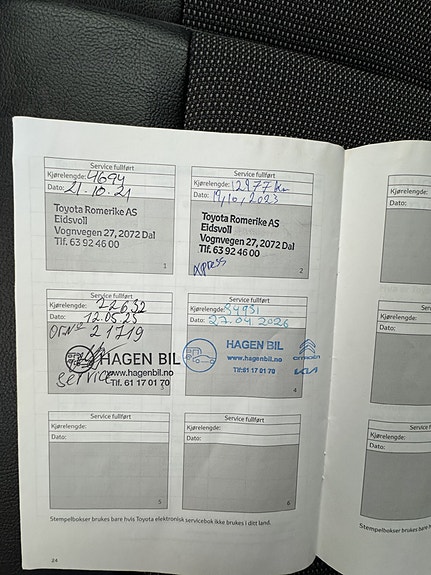 Service fullført
Kjørelengde: 4694
Dato: 21-10-21
Toyota Romerike AS
Eidsvoll
Vognvegen 27, 2072 Dal
Tlf. 63 92 46 00
1
Service fullført
Kjørelengde: 12977 km
Dato: 19/10/2023
Toyota Romerike AS
Eidsvoll
Vognvegen 27, 2072 Dal
Tlf. 63 92 46 00
xpress
2
Service fullført
Kjørelengde: 22632
Dato: 12.05.25
21719
HAGEN BIL
www.hagenbil.no
Service
Tlf. 61 17 01 70
Service fullført
Kjørelengde: 84931
Dato: 27.04 2026
HAGEN BIL
www.hagenbil.no
Tlf: 61 17 01 70
CITROËN
KIA
4
Service fullført
Kjørelengde:
Dato:
5
Service fullført
Kjørelengde:
Dato:
6
Stempelbokser brukes bare hvis Toyota elektronisk servicebok ikke brukes i ditt land.
24
Kjøreleng
Dato:
Kjøreleng
Dato:
Kjøreleng
Dato:
Stempelbokser